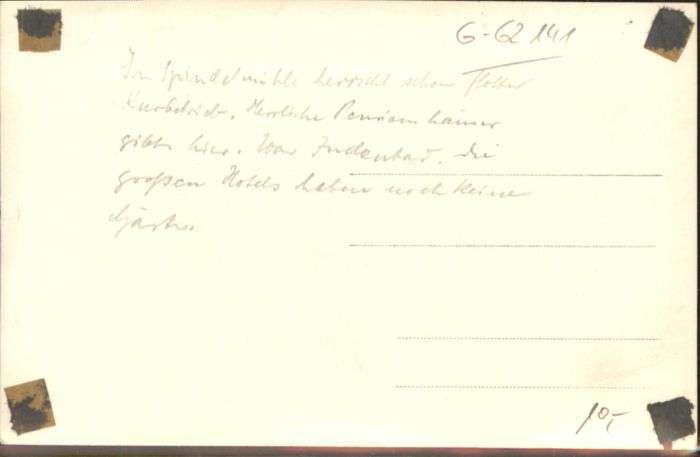 6-62 141
In Spindelmühle herrscht schon flotter
Kurbetrieb. Herrliche Pensionshäuser
gibts hier. War Judenbad. Die
großen Hotels haben noch keine
Gäste.
10,-